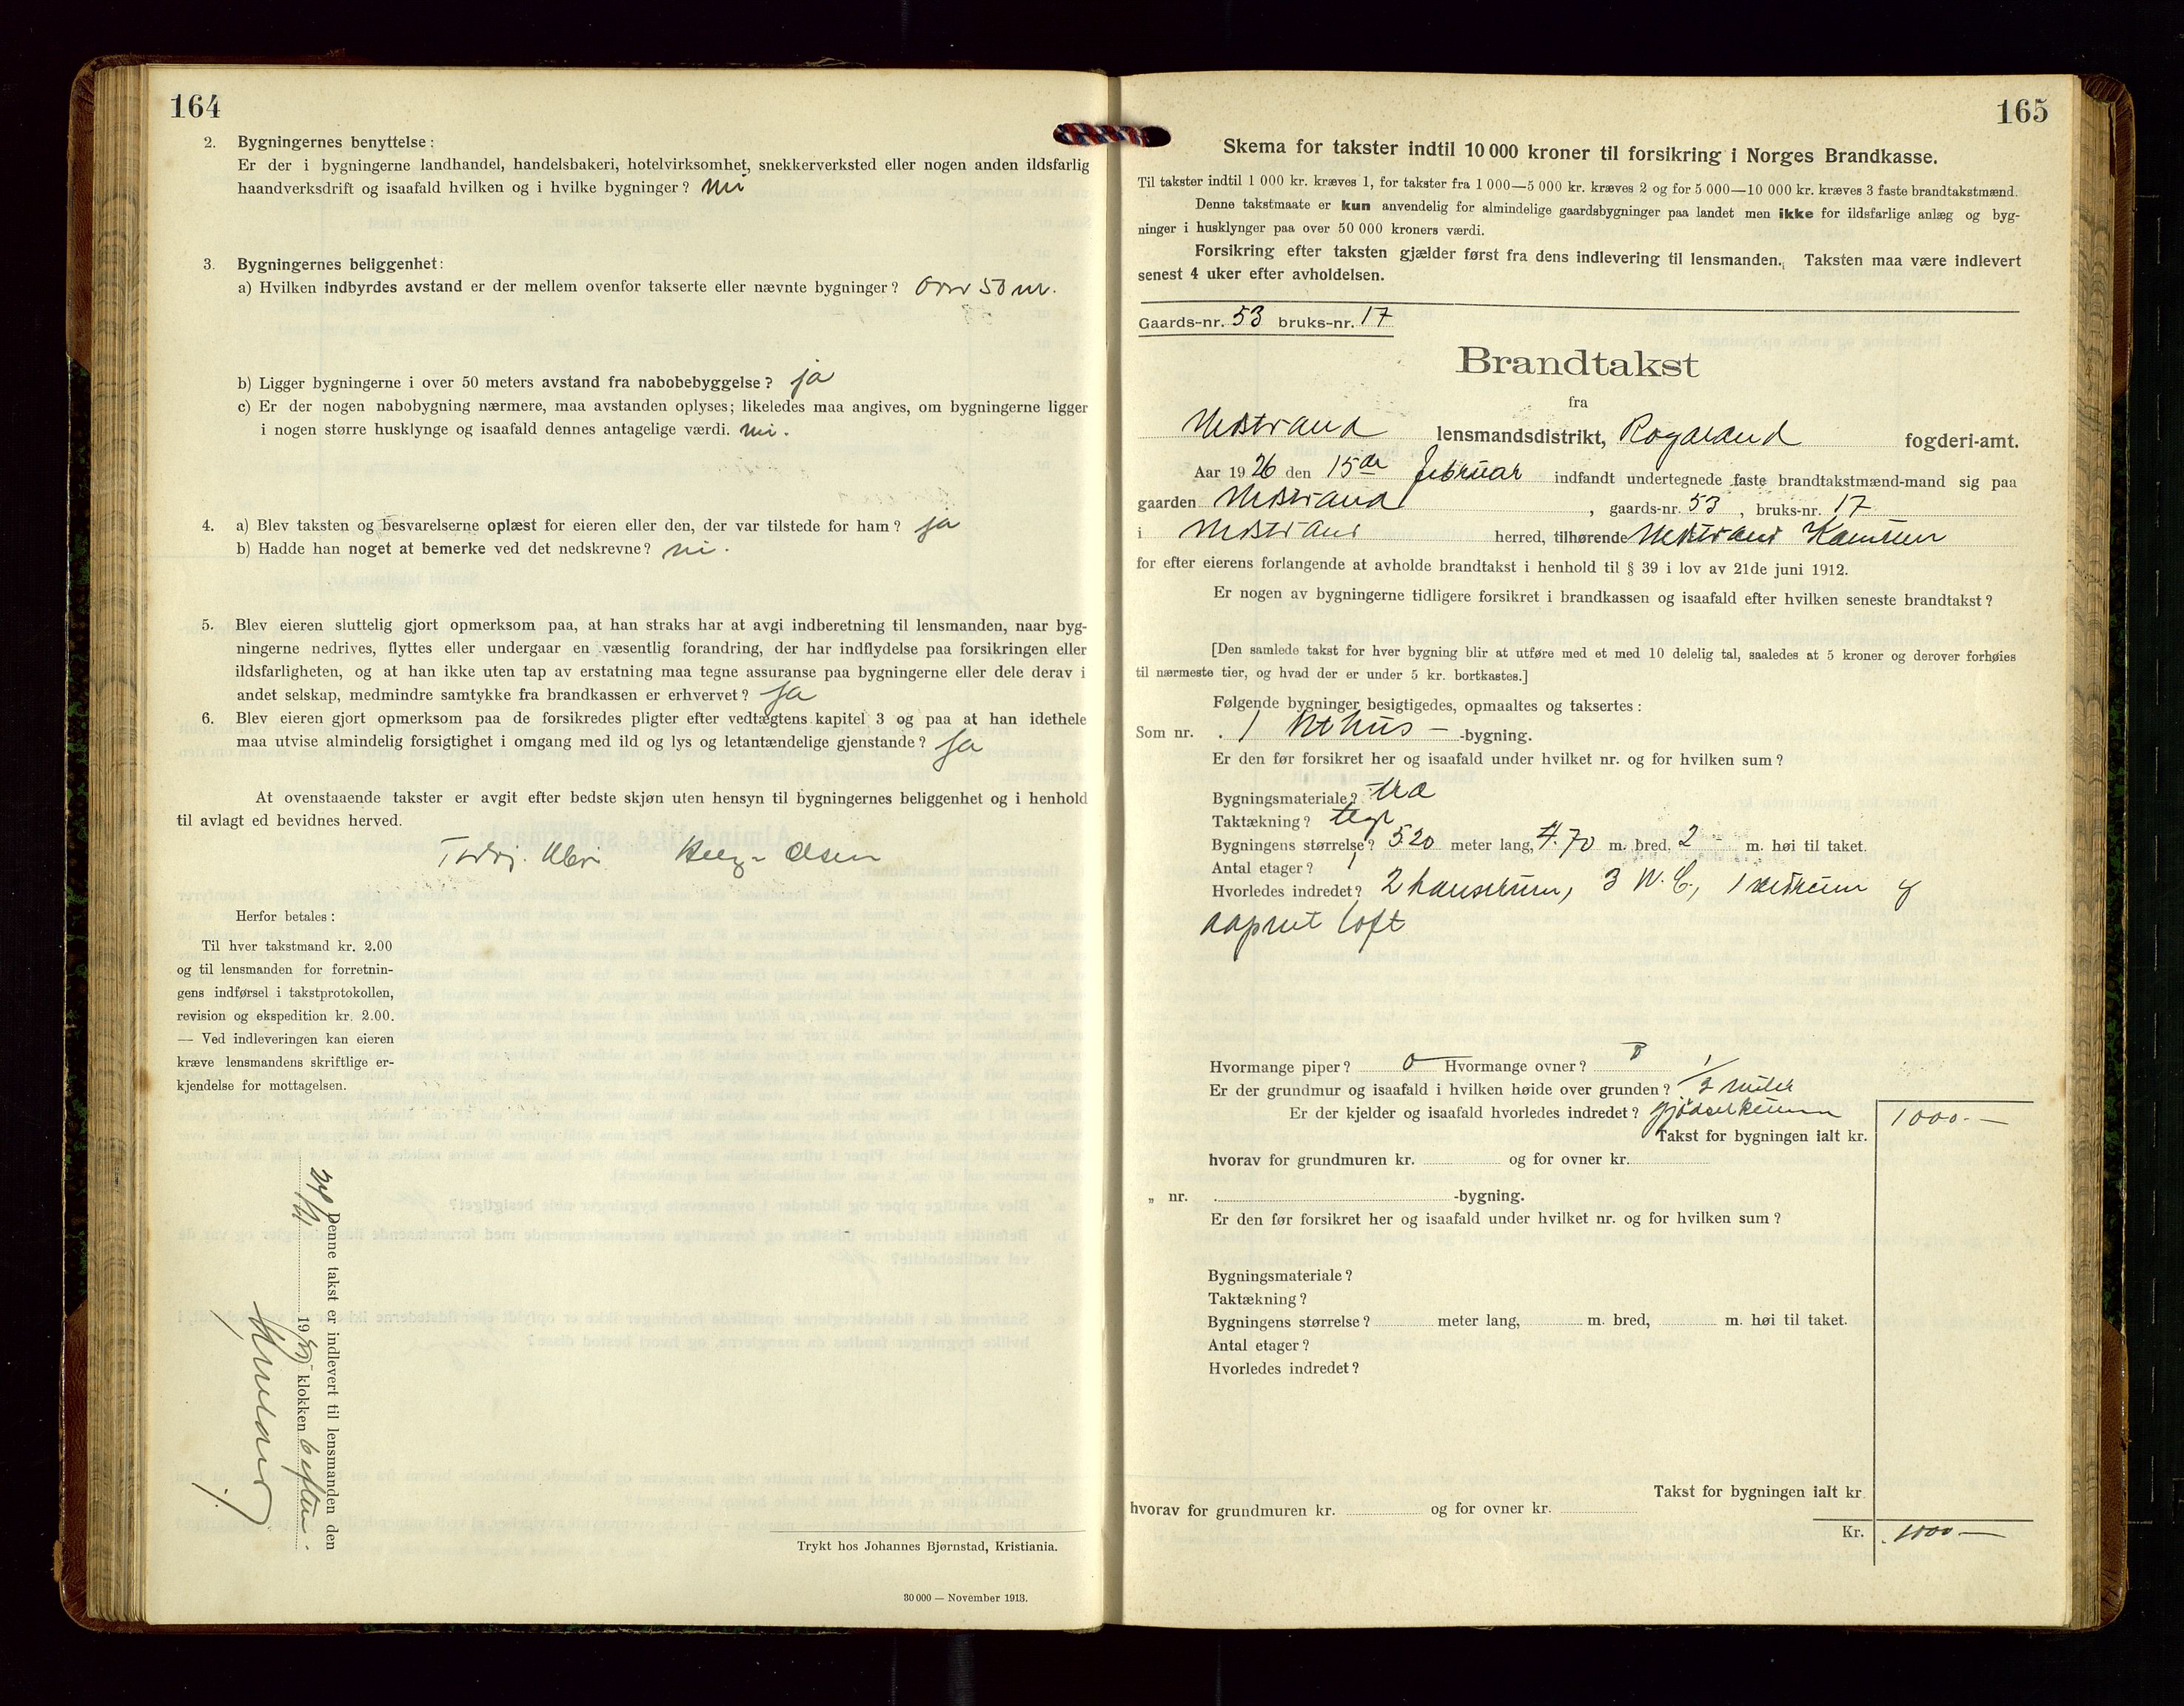 164
2. Bygningernes benyttelse:
Er der i bygningerne landhandel, handelsbakeri, hotelvirksomhet, snekkerverksted eller nogen anden ildsfarlig
haandverksdrift og isaafald hvilken og i hvilke bygninger? nei
3. Bygningernes beliggenhet:
a) Hvilken indbyrdes avstand er der mellem ovenfor takserte eller nævnte bygninger? Over 50 m.
b) Ligger bygningerne i over 50 meters avstand fra nabobebyggelse? ja
c) Er der nogen nabobygning nærmere, maa avstanden oplyses; likeledes maa angives, om bygningerne ligger
i nogen større husklynge og isaafald dennes antagelige værdi. nei.
4. a) Blev taksten og besvarelserne oplæst for eieren eller den, der var tilstede for ham? ja
b) Hadde han noget at bemerke ved det nedskrevne? nei.
5. Blev eieren sluttelig gjort opmerksom paa, at han straks har at avgi indberetning til lensmanden, naar byg-
ningerne nedrives, flyttes eller undergaar en væsentlig forandring, der har indflydelse paa forsikringen eller
ildsfarligheten, og at han ikke uten tap av erstatning maa tegne assuranse paa bygningerne eller dele derav i
andet selskap, medmindre samtykke fra brandkassen er erhvervet? Ja
6. Blev eieren gjort opmerksom paa de forsikredes pligter efter vedtægtens kapitel 3 og paa at han idethele
maa utvise almindelig forsigtighet i omgang med ild og lys og letantændelige gjenstande? Ja
At ovenstaaende takster er avgit efter bedste skjøn uten hensyn til bygningernes beliggenhet og i henhold
til avlagt ed bevidnes herved.
Olsen
Herfor betales:
Til hver takstmand kr. 2.00
og til lensmanden for forretnin-
gens indførsel i takstprotokollen,
revision og ekspedition kr. 2.00.
— Ved indleveringen kan eieren
kræve lensmandens skriftlige er-
kjendelse for mottagelsen.
Denne takst er indlevert til lensmanden den
19 klokken 6 efterm.
Trykt hos Johannes Bjørnstad, Kristiania.
30 000 — November 1913.
165
Skema for takster indtil 10 000 kroner til forsikring i Norges Brandkasse.
Til takster indtil 1 000 kr. kræves 1, for takster fra 1 000—5 000 kr. kræves 2 og for 5 000—10 000 kr. kræves 3 faste brandtakstmænd.
Denne takstmaate er kun anvendelig for almindelige gaardsbygninger paa landet men ikke for ildsfarlige anlæg og byg-
ninger i husklynger paa over 50 000 kroners værdi.
Forsikring efter taksten gjælder først fra dens indlevering til lensmanden. Taksten maa være indlevert
senest 4 uker efter avholdelsen.
Gaards-nr. 53 bruks-nr. 17
Brandtakst
fra
Nedstrand lensmandsdistrikt, Rogaland fogderi-amt.
Aar 1926 den 15de februar indfandt undertegnede faste brandtakstmænd-mand sig paa
gaarden Nedstrand, gaards-nr. 53, bruks-nr. 17
i Nedstrand herred, tilhørende Nedstrand Komune
for efter eierens forlangende at avholde brandtakst i henhold til § 39 i lov av 21de juni 1912.
Er nogen av bygningerne tidligere forsikret i brandkassen og isaafald efter hvilken seneste brandtakst?
[Den samlede takst for hver bygning blir at utføre med et med 10 delelig tal, saaledes at 5 kroner og derover forhøies
til nærmeste tier, og hvad der er under 5 kr. bortkastes.]
Følgende bygninger besigtigedes, opmaaltes og taksertes:
Som nr. 1 Uthus -bygning.
Er den før forsikret her og isaafald under hvilket nr. og for hvilken sum?
Bygningsmateriale? træ
Taktækning? tegl
Bygningens størrelse? 5.20 meter lang, 4.70 m. bred, 2 - m. høi til taket.
Antal etager? 1
Hvorledes indredet? 2 3 W. C., 1 og
aapent loft
Hvormange piper? 0 Hvormange ovner? 0
Er der grundmur og isaafald i hvilken høide over grunden? 1/2 meter
Er der kjelder og isaafald hvorledes indredet? gjødselkum
Takst for bygningen ialt kr. 1000.—
hvorav for grundmuren kr. og for ovner kr.
„ nr. -bygning.
Er den før forsikret her og isaafald under hvilket nr. og for hvilken sum?
Bygningsmateriale?
Taktækning?
Bygningens størrelse? meter lang, m. bred, m. høi til taket.
Antal etager?
Hvorledes indredet?
Takst for bygningen ialt kr
hvorav for grundmuren kr. og for ovner kr.
Kr. 1000 —